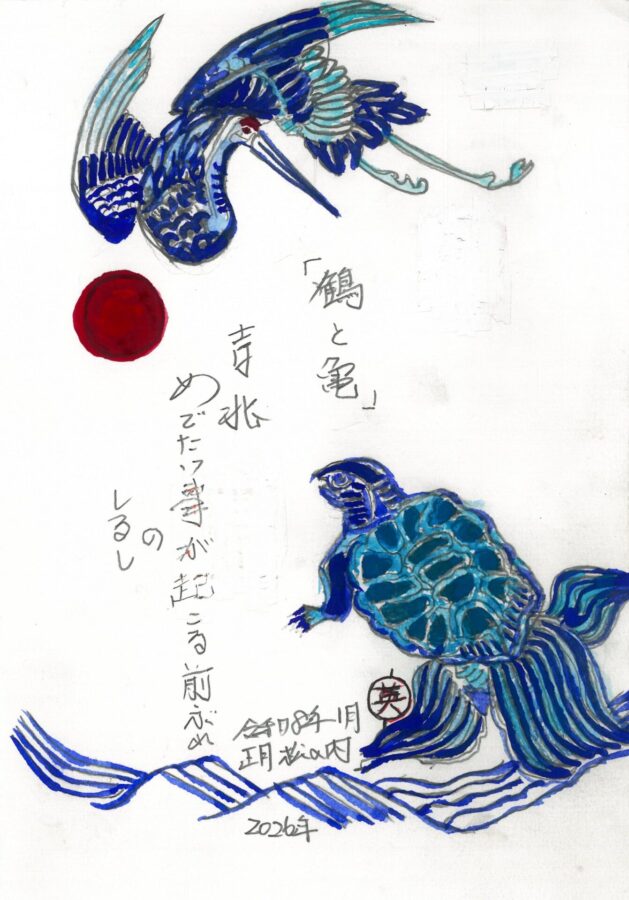 「鶴と亀」
吉兆
めでたい事が起こる前ぶれ
の
しるし
令和8年1月
正月松の内
英
2026年